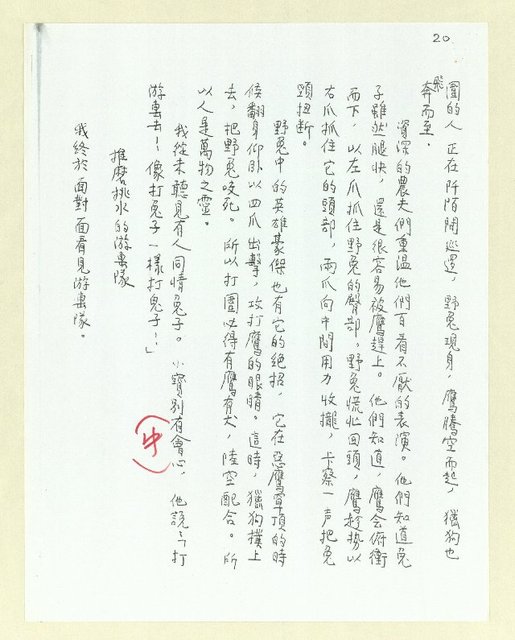 20
圍的人正在阡陌間巡邏，野兔現身，鷹騰空而起，獵狗也
飛奔而至．
資深的農夫們重溫他們百看不厭的表演。他們知道兔
子雖然腿快，還是很容易被鷹趕上。他們知道，鷹会俯衝
而下，以左爪抓住野兔的臀部，野兔慌忙回頭，鷹趁势以
右爪抓住它的頭部，兩爪向中間用力收攏，卡察一声把兔
頸扭断。
野兔中的英雄豪傑也有它的絕招，它在惡鷹罩頂的時
候翻身仰卧以四爪出擊，攻打鷹的眼睛。這時，獵狗撲上
去，把野兔咬死。所以打圍必得有鷹有犬，陸空配合。所
以人是萬物之靈。
我從未聽見有人同情兔子。小寶别有會心，他說：打
游擊去！像打兔子一樣打鬼子！」
(中)
推磨挑水的游擊隊
我終於面對面看見游擊隊。